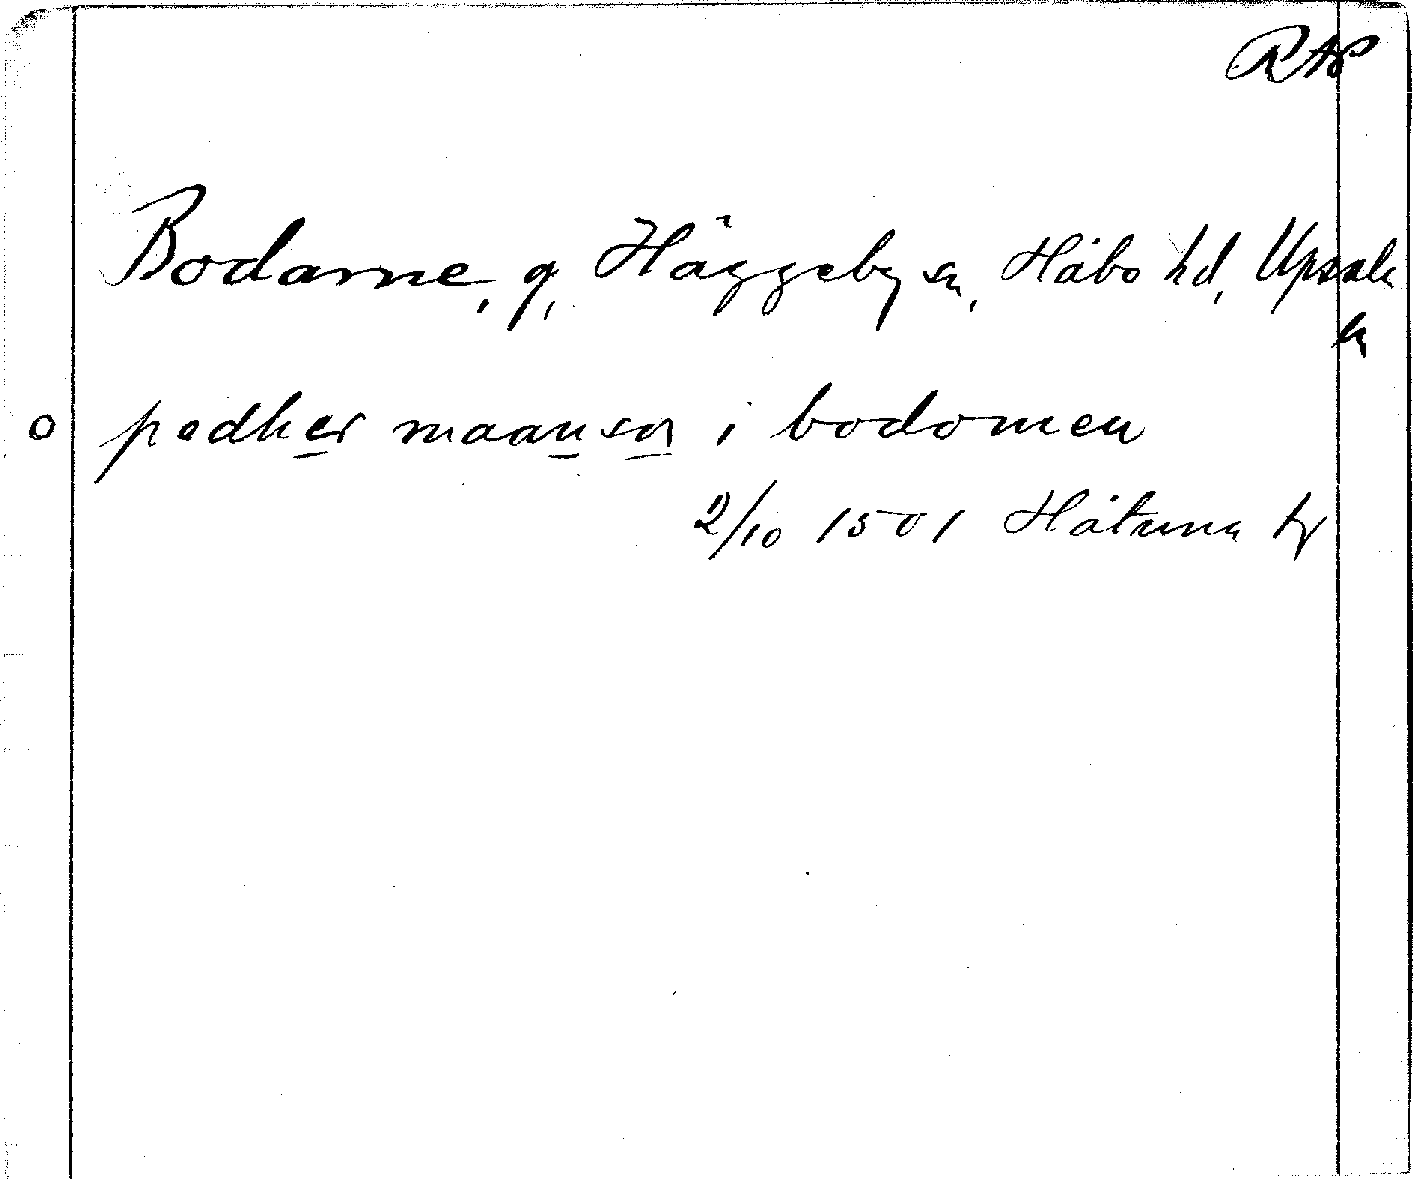 RAP
Bodarne, g, Häggeby sn, Håbo hd, Upsala
ln
o pedher maanson i bodomen
2/10 1501 Håtuna